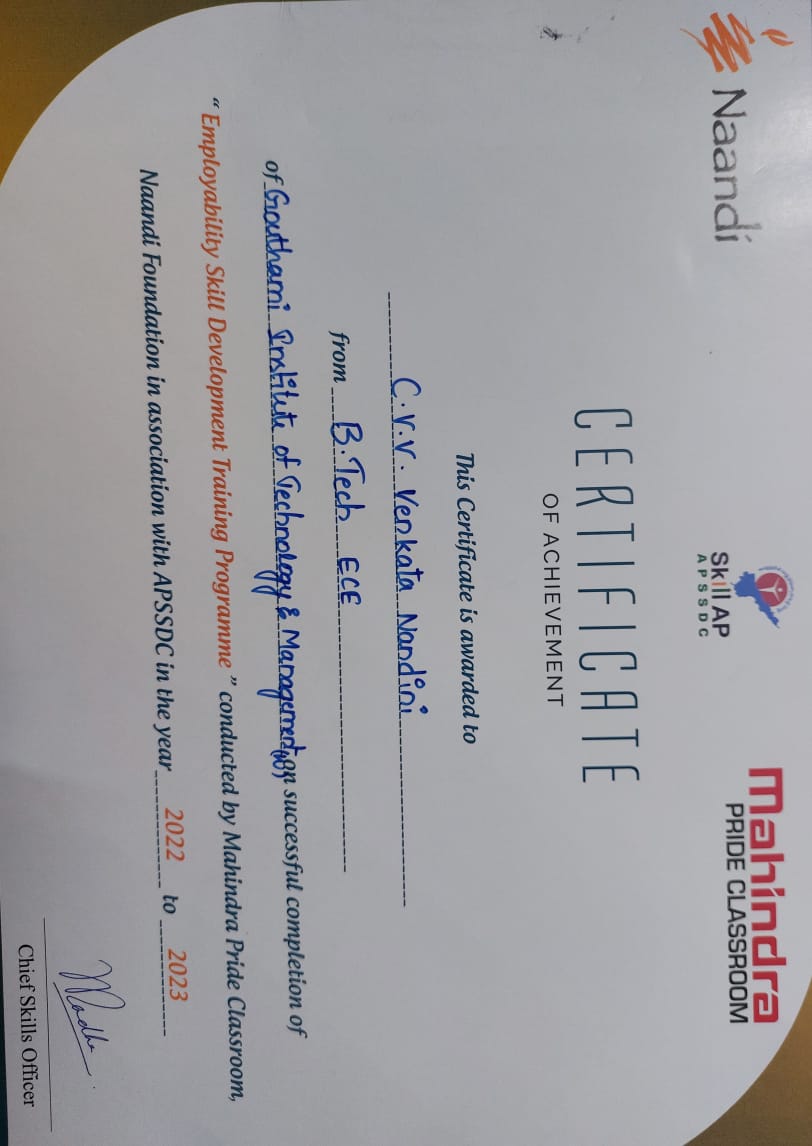 Naandi
Skill AP
APSSDC
Mahindra
PRIDE CLASSROOM
CERTIFICATE
OF ACHIEVEMENT
This Certificate is awarded to
C.V.V. Venkata Nandini
from B.Tech ECE
of Gouthami Institute of Technology & Management on successful completion of
“ Employability Skill Development Training Programme ” conducted by Mahindra Pride Classroom,
Naandi Foundation in association with APSSDC in the year 2022 to 2023
Madhu
Chief Skills Officer